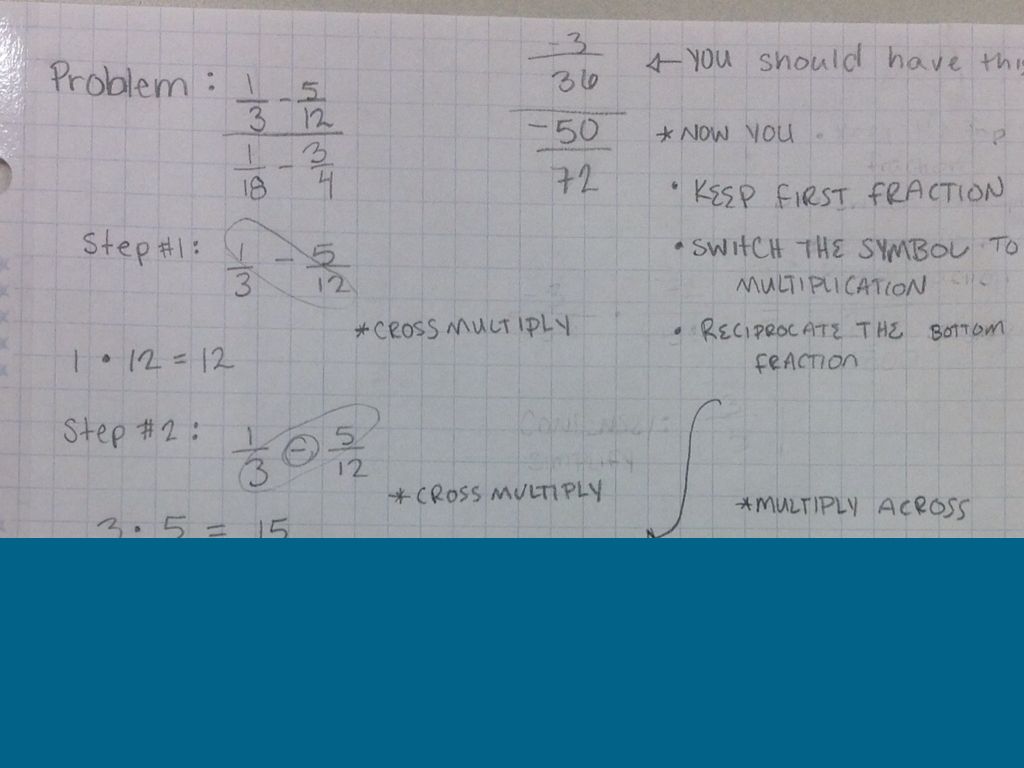 Problem: 1/3 - 5/12
1/18 - 3/4
Step #1: 1/3 - 5/12
*CROSS MULTIPLY
1 • 12 = 12
Step #2: 1/3 - 5/12
*CROSS MULTIPLY
3 • 5 = 15
-3/36
-50/72
← YOU should have this
*NOW YOU
• KEEP FIRST FRACTION
• SWITCH THE SYMBOL TO
MULTIPLICATION
• RECIPROCATE THE BOTTOM
FRACTION
*MULTIPLY ACROSS